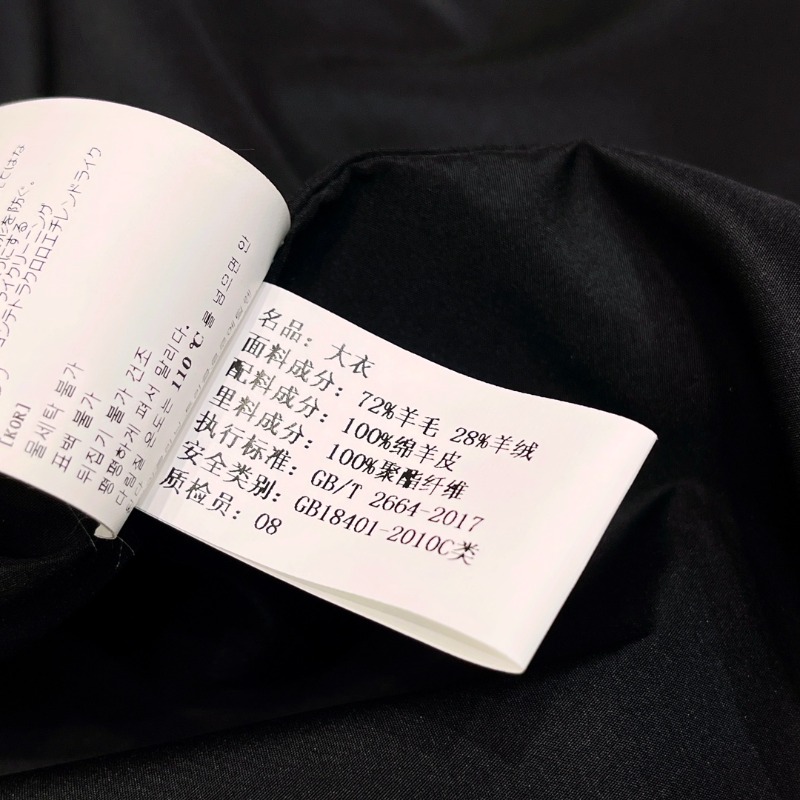 名品：大衣
面料成分：72%羊毛 28%羊绒
配料成分：100%绵羊皮
里料成分：100%聚酯纤维
执行标准：GB/T 2664-2017
安全类别：GB18401-2010C类
质检员：08
[KOR.]
물세탁 불가
표백 불가
뒤집기 불가 건조
평평하게 펴서 말리다.
다림질 온도는 110℃ 를 넘으면 안
を防ぐ。
にする
ライクリーニング
ョンテトラクロロエチレンドライク